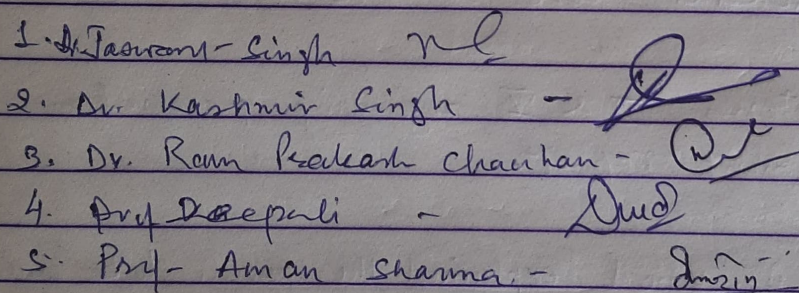 1. Dr. Jaswant - Singh
2. Dr. Kashmir Singh -
3. Dr. Ram Prakash Chauhan -
4. Prof Deepali -
5. Prof - Aman Sharma. -